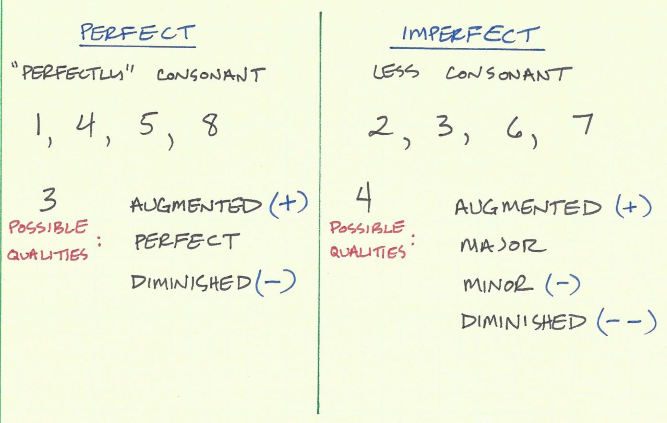 PERFECT
"PERFECTLY" CONSONANT
1, 4, 5, 8
3
POSSIBLE
QUALITIES :
AUGMENTED (+)
PERFECT
DIMINISHED (-)
IMPERFECT
LESS CONSONANT
2, 3, 6, 7
4
POSSIBLE
QUALITIES :
AUGMENTED (+)
MAJOR
MINOR (-)
DIMINISHED (--)